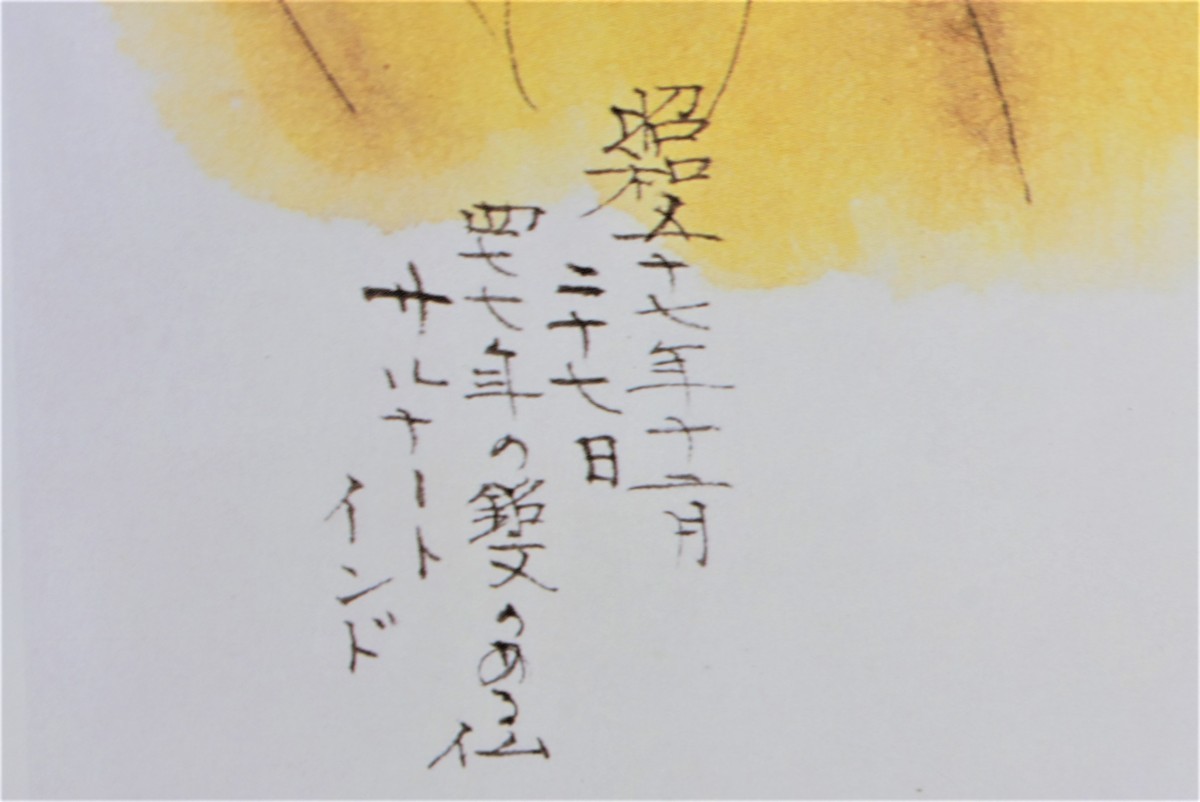 昭和五十七年十二月
二十七日
四七七年の銘文のある仏
サルナート
インド